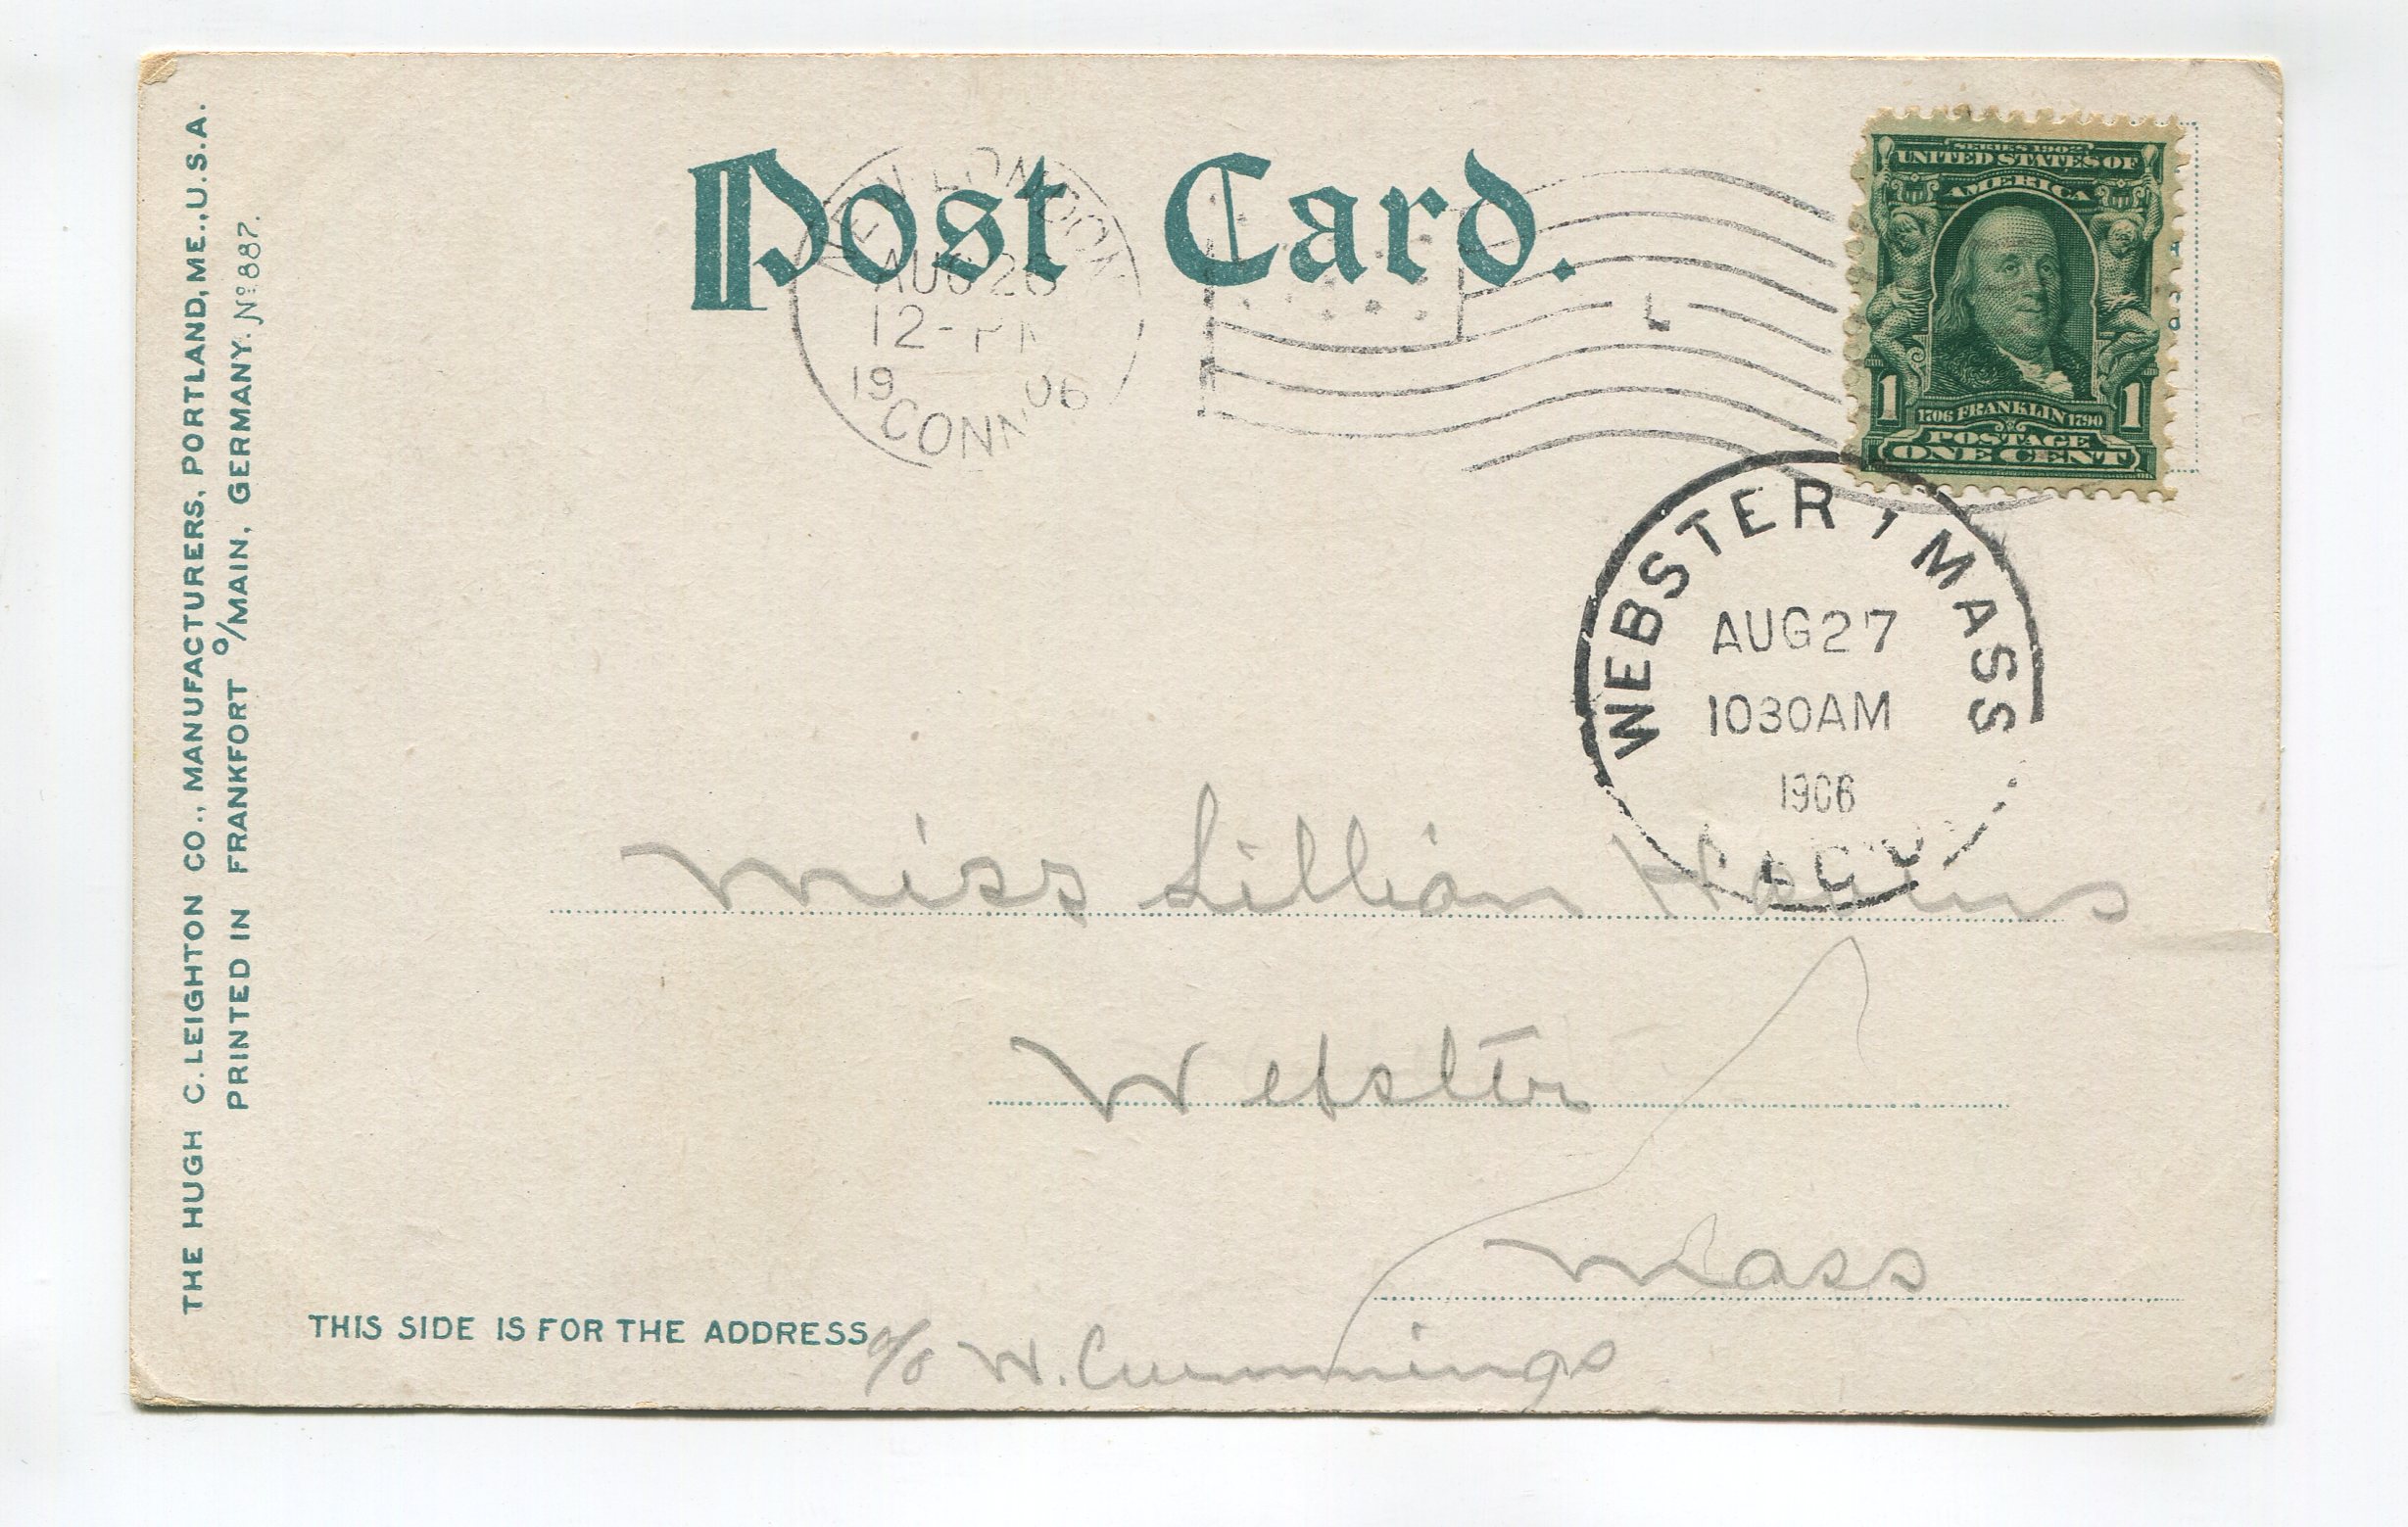 Post Card.
NEW LONDON
AUG 26
12-PM
1906
CONN
SERIES 1902
UNITED STATES OF
AMERICA
1 1
1706 FRANKLIN 1790
POSTAGE
ONE CENT
WEBSTER, MASS
AUG 27
1030AM
1906
Miss Lillian
Webster
Mass
c/o W. Cummings
THIS SIDE IS FOR THE ADDRESS
THE HUGH C. LEIGHTON CO., MANUFACTURERS, PORTLAND, ME., U.S.A.
PRINTED IN FRANKFORT o/MAIN, GERMANY. No 887.